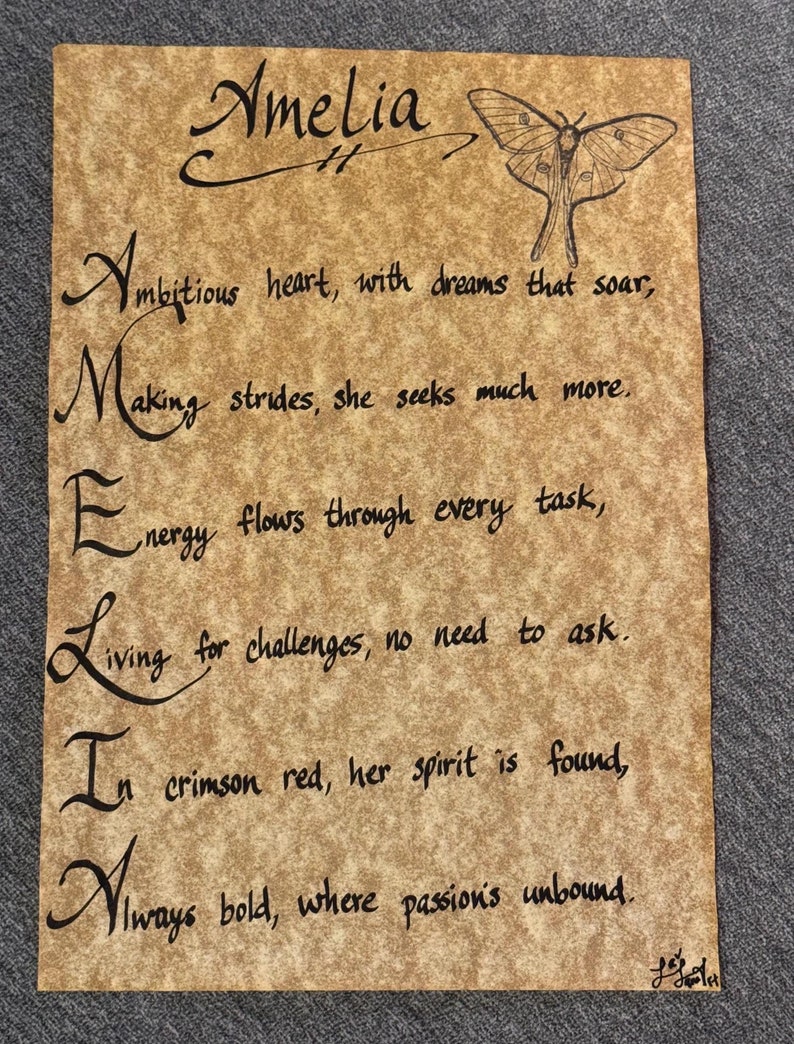 Amelia
Ambitious heart, with dreams that soar,
Making strides, she seeks much more.
Energy flows through every task,
Living for challenges, no need to ask.
In crimson red, her spirit is found,
Always bold, where passion's unbound.